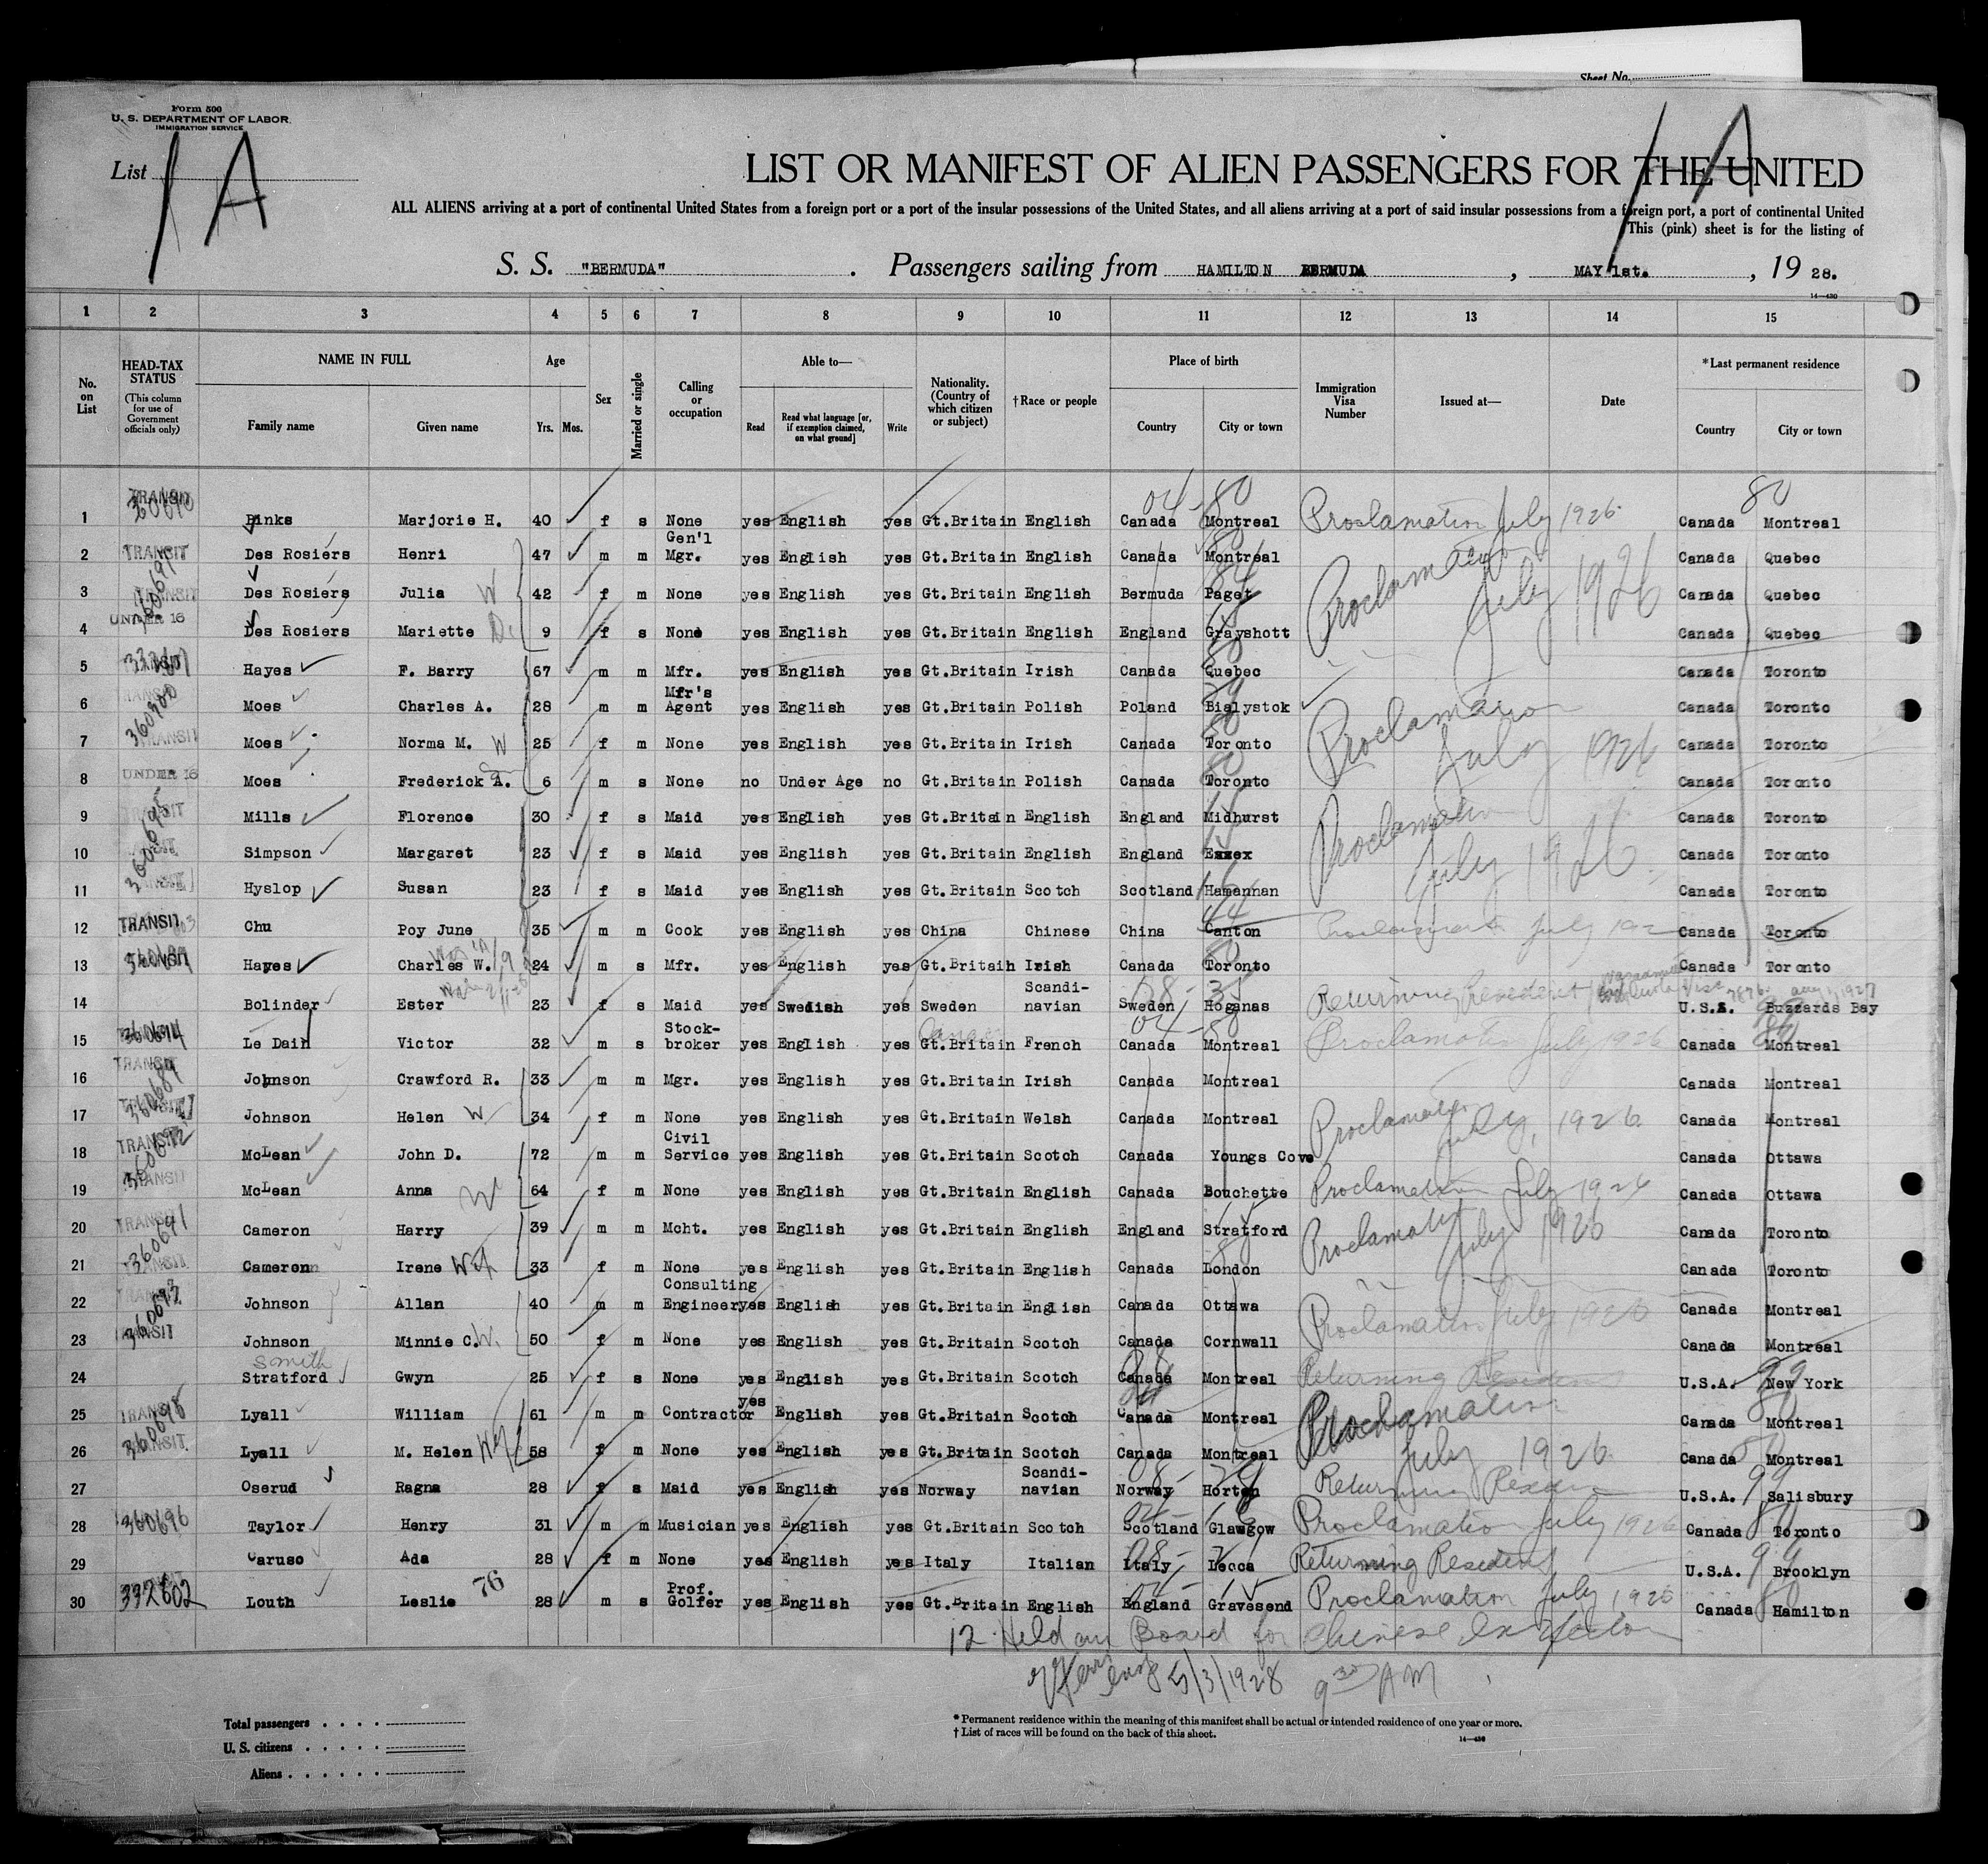 Sheet No.
Form 500
U. S. DEPARTMENT OF LABOR
IMMIGRATION SERVICE
List 1 A
1 A
LIST OR MANIFEST OF ALIEN PASSENGERS FOR THE UNITED
ALL ALIENS arriving at a port of continental United States from a foreign port or a port of the insular possessions of the United States, and all aliens arriving at a port of said insular possessions from a foreign port, a port of continental United
This (pink) sheet is for the listing of
S. S. "BERMUDA" . Passengers sailing from HAMILTON BERMUDA , MAY 1st. , 19 28.
14—430
1 2 3 4 5 6 7 8 9 10 11 12 13 14 15
No. on List HEAD-TAX STATUS (This column for use of Government officials only) NAME IN FULL Family name Given name Age Yrs. Mos. Sex Married or single Calling or occupation Able to— Read Read what language [or, if exemption claimed, on what ground] Write Nationality. (Country of which citizen or subject) †Race or people Place of birth Country City or town Immigration Visa Number Issued at— Date *Last permanent residence Country City or town
1 TRANSIT 360690 Binks Marjorie H. 40 f s None yes English yes Gt.Britain English Canada Montreal 04-80 Proclamation July 1926 Canada Montreal 80
2 TRANSIT Des Rosiers Henri 47 m m Gen'l Mgr. yes English yes Gt.Britain English Canada Montreal Proclamation July 1926 Canada Quebec
3 TRANSIT Des Rosiers Julia W 42 f m None yes English yes Gt.Britain English Bermuda Paget Canada Quebec
4 UNDER 16 Des Rosiers Mariette D. 9 f s None yes English yes Gt.Britain English England Grayshott Canada Quebec
5 Hayes F. Barry 67 m m Mfr. yes English yes Gt.Britain Irish Canada Quebec Canada Toronto
6 TRANSIT 360900 Moes Charles A. 28 m m Mfr's Agent yes English yes Gt.Britain Polish Poland Bialystok Proclamation July 1926 Canada Toronto
7 TRANSIT Moes Norma M. W 25 f m None yes English yes Gt.Britain Irish Canada Toronto Canada Toronto
8 UNDER 16 Moes Frederick A. 6 m s None no Under Age no Gt.Britain Polish Canada Toronto Canada Toronto
9 TRANSIT Mills Florence 30 f s Maid yes English yes Gt.Britain English England Midhurst Proclamation July 1926 Canada Toronto
10 Simpson Margaret 23 f s Maid yes English yes Gt.Britain English England Essex Canada Toronto
11 Hyslop Susan 23 f s Maid yes English yes Gt.Britain Scotch Scotland Hamannan Canada Toronto
12 TRANSIT Chu Poy June 35 m m Cook yes English yes China Chinese China Canton Proclamation July 192 Canada Toronto
13 Hayes Charles W. 24 m s Mfr. yes English yes Gt.Britain Irish Canada Toronto Canada Toronto
14 Bolinder Ester 23 f s Maid yes Swedish yes Sweden Scandi-navian Sweden Hoganas Returning Resident U.S.A. Buzzards Bay
15 360694 Le Dain Victor 32 m s Stock-broker yes English yes Gt.Britain French Canada Montreal 04-80 Proclamation July 1926 Canada Montreal
16 TRANSIT 360689 Johnson Crawford R. 33 m m Mgr. yes English yes Gt.Britain Irish Canada Montreal Canada Montreal
17 Johnson Helen W 34 f m None yes English yes Gt.Britain Welsh Canada Montreal Proclamation July, 1926 Canada Montreal
18 TRANSIT 360692 McLean John D. 72 m m Civil Service yes English yes Gt.Britain Scotch Canada Youngs Cove Canada Ottawa
19 TRANSIT McLean Anna W 64 f m None yes English yes Gt.Britain English Canada Bouchette Proclamation July 1926 Canada Ottawa
20 TRANSIT 360691 Cameron Harry 39 m m Mcht. yes English yes Gt.Britain English England Stratford Proclamation July 1926 Canada Toronto
21 TRANSIT Cameron Irene Wf 33 f m None yes English yes Gt.Britain English Canada London Canada Toronto
22 360693 Johnson Allan 40 m m Consulting Engineer yes English yes Gt.Britain English Canada Ottawa Proclamation July 1926 Canada Montreal
23 TRANSIT Johnson Minnie C. W. 50 f m None yes English yes Gt.Britain Scotch Canada Cornwall Canada Montreal
24 Smith Stratford Gwyn 25 f s None yes English yes Gt.Britain Scotch Canada Montreal Returning Resident U.S.A. New York 99
25 TRANSIT 360698 Lyall William 61 m m Contractor yes English yes Gt.Britain Scotch Canada Montreal Proclamation July 1926 Canada Montreal
26 TRANSIT Lyall M. Helen Wf 58 f m None yes English yes Gt.Britain Scotch Canada Montreal Canada Montreal
27 Oserud Ragna 28 f s Maid yes English yes Norway Scandi-navian Norway Horten Returning U.S.A. Salisbury 99
28 360696 Taylor Henry 31 m m Musician yes English yes Gt.Britain Scotch Scotland Glawgow Proclamation July 1926 Canada Toronto
29 Caruso Ada 28 f m None yes English yes Italy Italian Italy Lecca Returning Resident U.S.A. Brooklyn 99
30 332602 Louth Leslie 76 28 m s Prof. Golfer yes English yes Gt.Britain English England Gravesend Proclamation July 1926 Canada Hamilton 80
12 Held on Board for Chinese Inspector
5/3/1928 9 30 AM
Total passengers
U. S. citizens
Aliens
* Permanent residence within the meaning of this manifest shall be actual or intended residence of one year or more.
† List of races will be found on the back of this sheet.
14—430